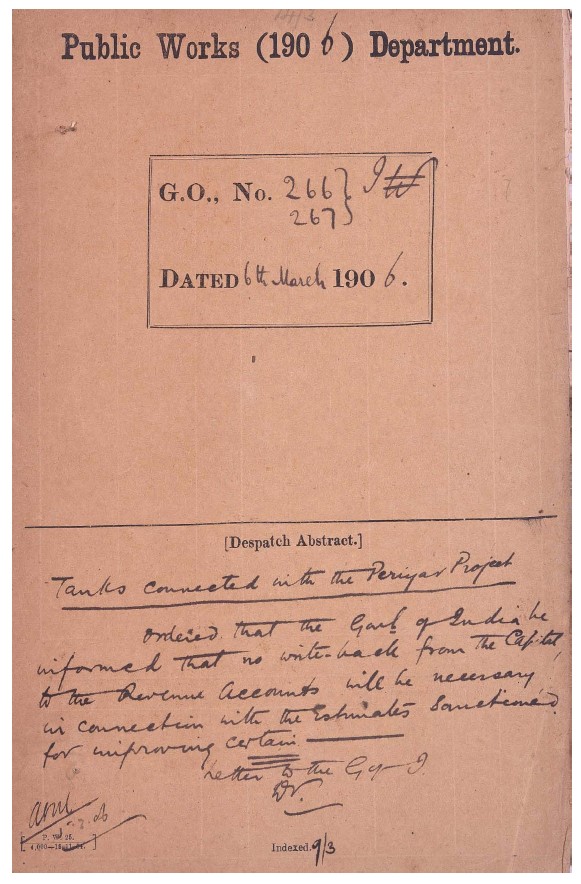 Public Works (1906) Department.
G.O., No. 266} I W
267}
DATED 6th March 1906.
[Despatch Abstract.]
Tanks connected with the Periyar Project
Ordered that the Govt of India be
informed that no write-back from the Capital
to the Revenue Accounts will be necessary
in connection with the Estimates Sanctioned
for improving certain
Letter to the G of I.
P. W. 25.
Indexed. 9/3